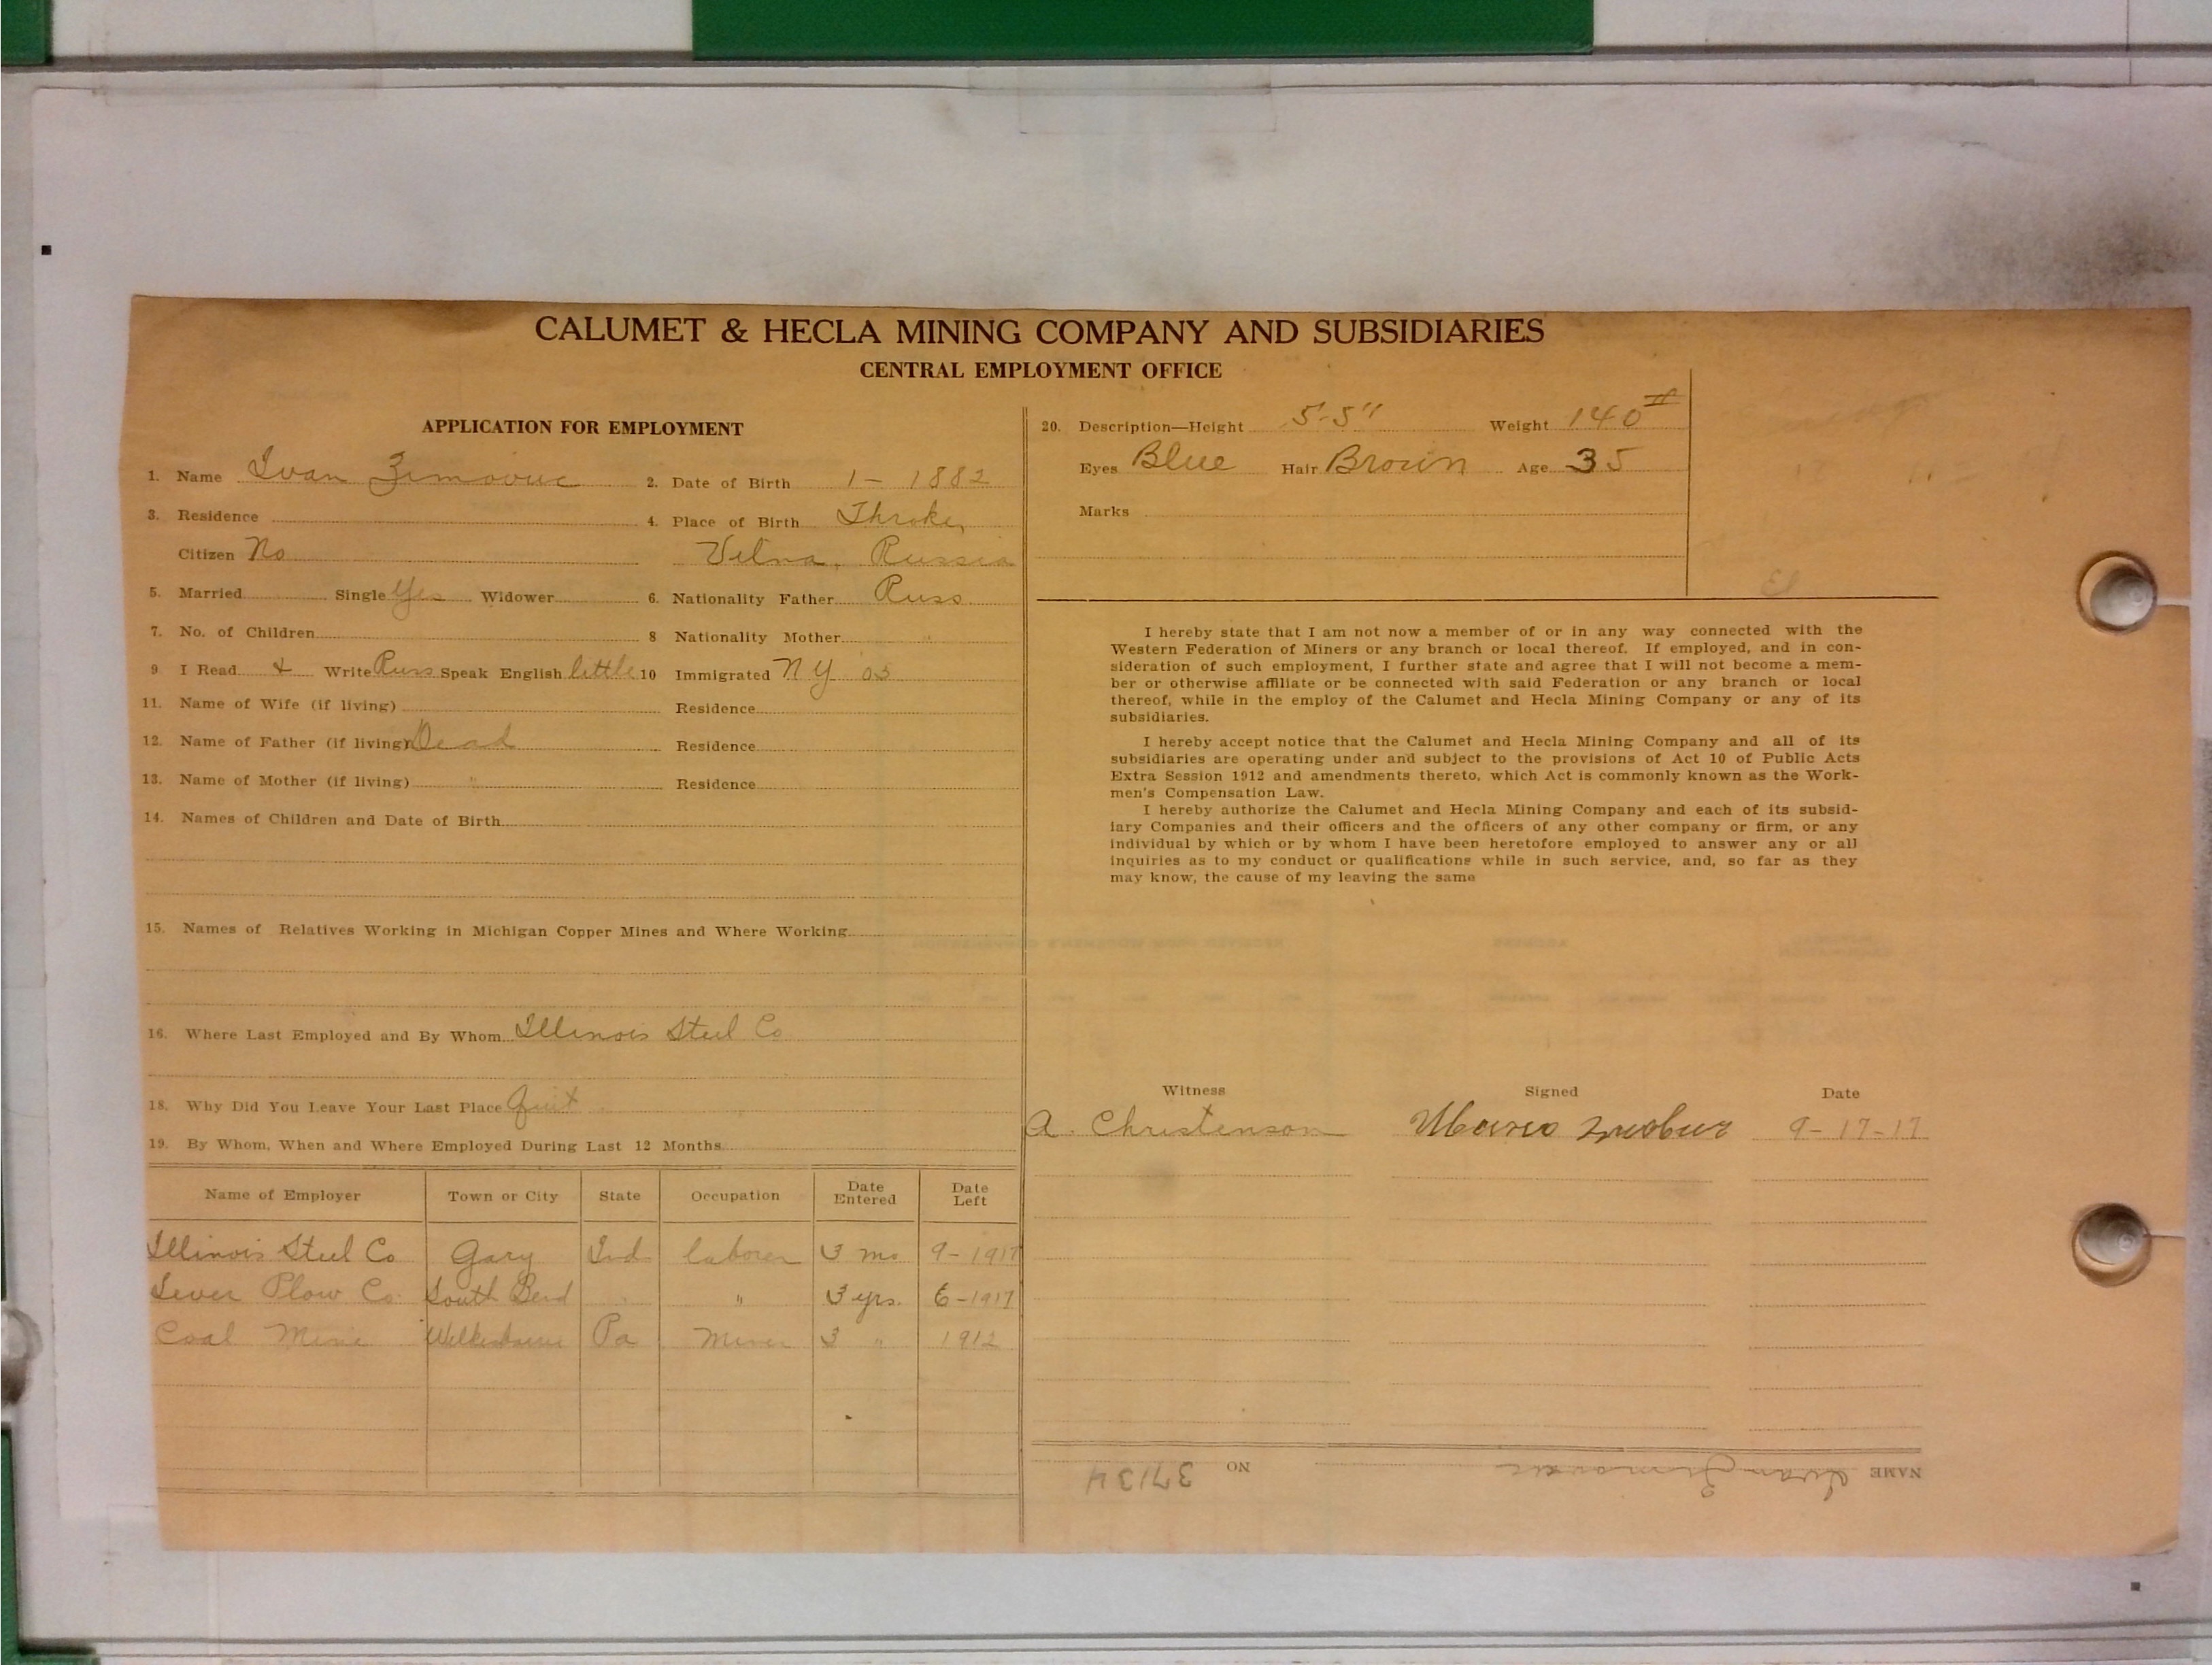 CALUMET & HECLA MINING COMPANY AND SUBSIDIARIES
CENTRAL EMPLOYMENT OFFICE
APPLICATION FOR EMPLOYMENT
1. Name Ivan Zimovuc 2. Date of Birth 1 - 1882
3. Residence 4. Place of Birth Throke,
Citizen No Vilna, Russia
5. Married Single Yes Widower 6. Nationality Father Russ
7. No. of Children 8 Nationality Mother "
9 I Read & Write Russ Speak English little 10 Immigrated NY 05
11. Name of Wife (if living) Residence
12. Name of Father (if living) Dead Residence
13. Name of Mother (if living) " Residence
14. Names of Children and Date of Birth
15. Names of Relatives Working in Michigan Copper Mines and Where Working
16. Where Last Employed and By Whom Illinois Steel Co
18. Why Did You Leave Your Last Place Quit
19. By Whom, When and Where Employed During Last 12 Months
Name of Employer Town or City State Occupation Date Entered Date Left
Illinois Steel Co Gary Ind laborer 3 mo 9-1917
Plow Co. South Bend " 3 yrs. 6-1917
Coal Mine Wilkesbarre Pa Miner 3 " 1912
20. Description—Height 5'-5" Weight 140#
Eyes Blue Hair Brown Age 35
Marks
I hereby state that I am not now a member of or in any way connected with the
Western Federation of Miners or any branch or local thereof. If employed, and in con-
sideration of such employment, I further state and agree that I will not become a mem-
ber or otherwise affiliate or be connected with said Federation or any branch or local
thereof, while in the employ of the Calumet and Hecla Mining Company or any of its
subsidiaries.
I hereby accept notice that the Calumet and Hecla Mining Company and all of its
subsidiaries are operating under and subject to the provisions of Act 10 of Public Acts
Extra Session 1912 and amendments thereto, which Act is commonly known as the Work-
men's Compensation Law.
I hereby authorize the Calumet and Hecla Mining Company and each of its subsid-
iary Companies and their officers and the officers of any other company or firm, or any
individual by which or by whom I have been heretofore employed to answer any or all
inquiries as to my conduct or qualifications while in such service, and, so far as they
may know, the cause of my leaving the same
Witness Signed Date
A. Christenson 9-17-17
NAME Ivan Zimovuc NO 37134